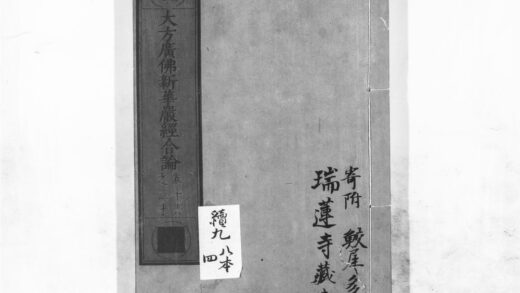 寄附 鮫尾多
瑞蓮寺藏
大方廣佛新華嚴經合論
續九
八本
四